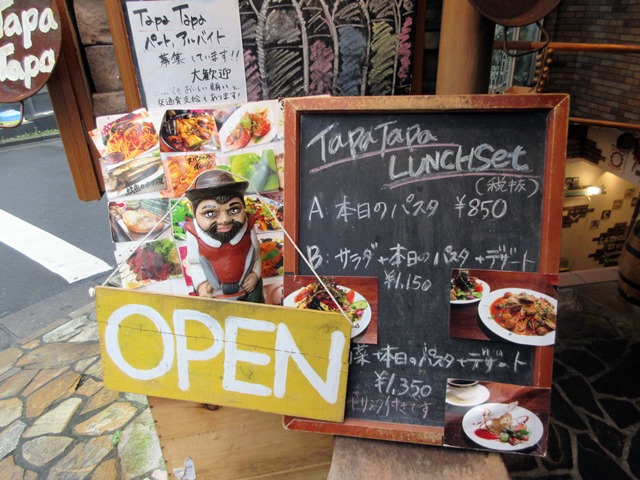 Tapa
Tapa
Tapa Tapa
パート,アルバイト
募集しています!!
大歓迎
交通費支給もあります!
TapaTapa
LUNCH Set
(税抜)
A 本日のパスタ ¥850
B: サラダ+本日のパスタ+デザート
¥1,150
菜+本日のパスタ+デザート
¥1,350
ドリンク付きです
OPEN